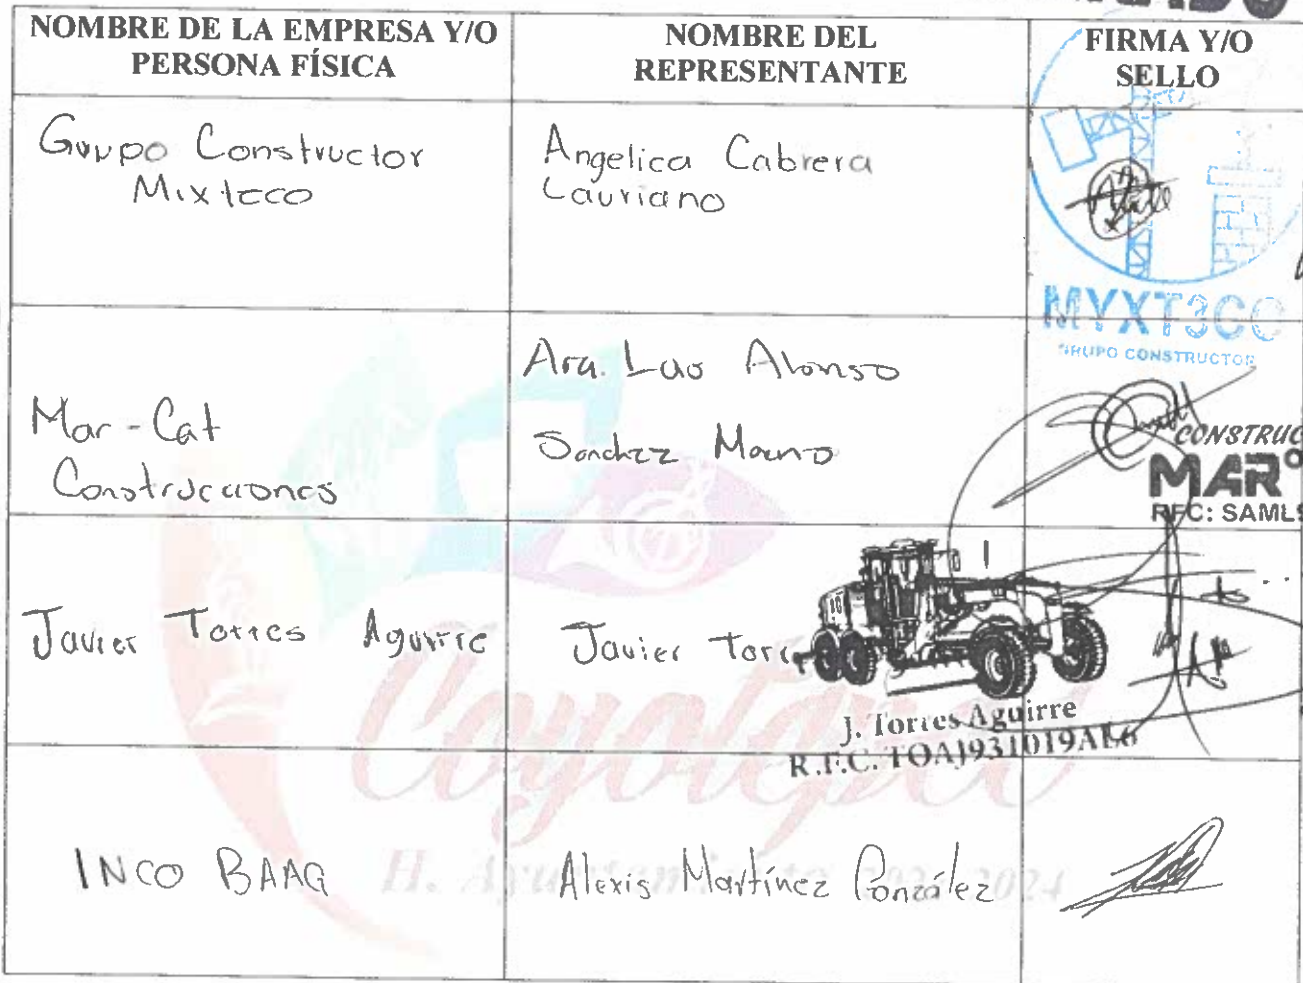 NOMBRE DE LA EMPRESA Y/O
PERSONA FÍSICA
NOMBRE DEL
REPRESENTANTE
FIRMA Y/O
SELLO
Grupo Constructor
Mixteco
Angelica Cabrera
Lauriano
MYXT3CO
GRUPO CONSTRUCTOR
Mar-Cat
Construcciones
Arq. Luis Alonso
Sanchez
CONSTRUC
MAR
RFC: SAML9
Javier Torres Aguirre
Javier Torre
J. Torres Aguirre
R.F.C. TOAJ931019AL6
INCO BAAG
Alexis Martínez González
Coyotepec
H. Ayuntamiento 2024